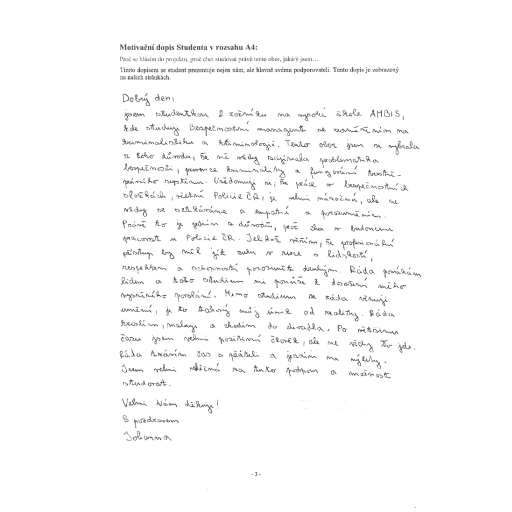 Motivační dopis Studenta v rozsahu A4:
Proč se hlásím do projektu, proč chci studovat právě tento obor, jaký/á jsem…
Tímto dopisem se student prezentuje nejen nám, ale hlavně svému podporovateli. Tento dopis je zobrazený
na našich stránkách.
Dobrý den,
jsem studentkou 2 ročníku na vysoké škole AMBIS,
kde studuji Bezpečnostní management se zaměřením na
kriminalistiku a kriminologii. Tento obor jsem si vybrala
z toho důvodu, že mě vždy zajímala problematika
bezpečnosti, prevence kriminality a fungování trestně-
právního systému. Uvědomuji si, že práce v bezpečnostních
složkách, včetně Policie ČR, je velmi náročná, ale ne
vždy se setkáváme s empatií a porozuměním.
Právě to je jedním z důvodů, proč chci v budoucnu
pracovat u Policie ČR. Jelikož věřím, že profesionální
přístup by měl jít ruku v ruce s lidskostí,
respektem a schopností porozumět druhým. Ráda pomáhám
lidem a toto studium mi pomůže k dosažení mého
vysněného povolání. Mimo studium se ráda věnuji
umění, je to takový můj únik od reality. Ráda
kreslím, maluji a chodím do divadla. Po většinu
času jsem velmi pozitivní člověk, ale ne vždy to jde.
Ráda trávím čas s přáteli a jezdím na výlety.
Jsem velmi vděčná za tuto podporu a možnost
studovat.
Velmi Vám děkuji!
S pozdravem
Johanna
- 3 -